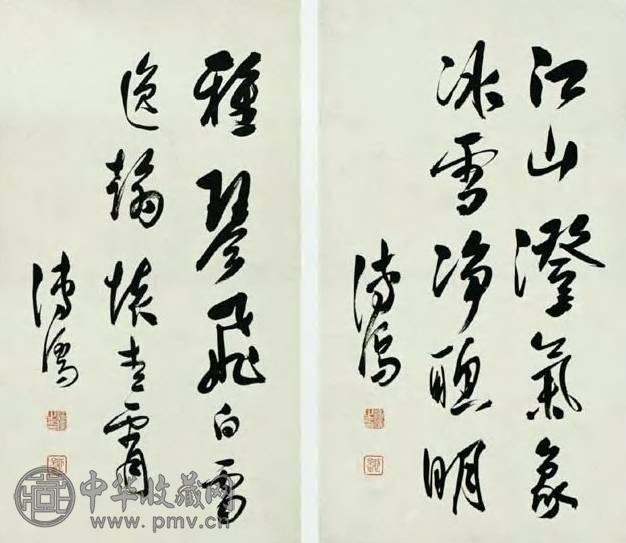 江山澄氣象
冰雪净聰明
溥儒
雅琴飛白雪
逸翰懷青霄
溥儒
中华收藏网
www.pmv.cn